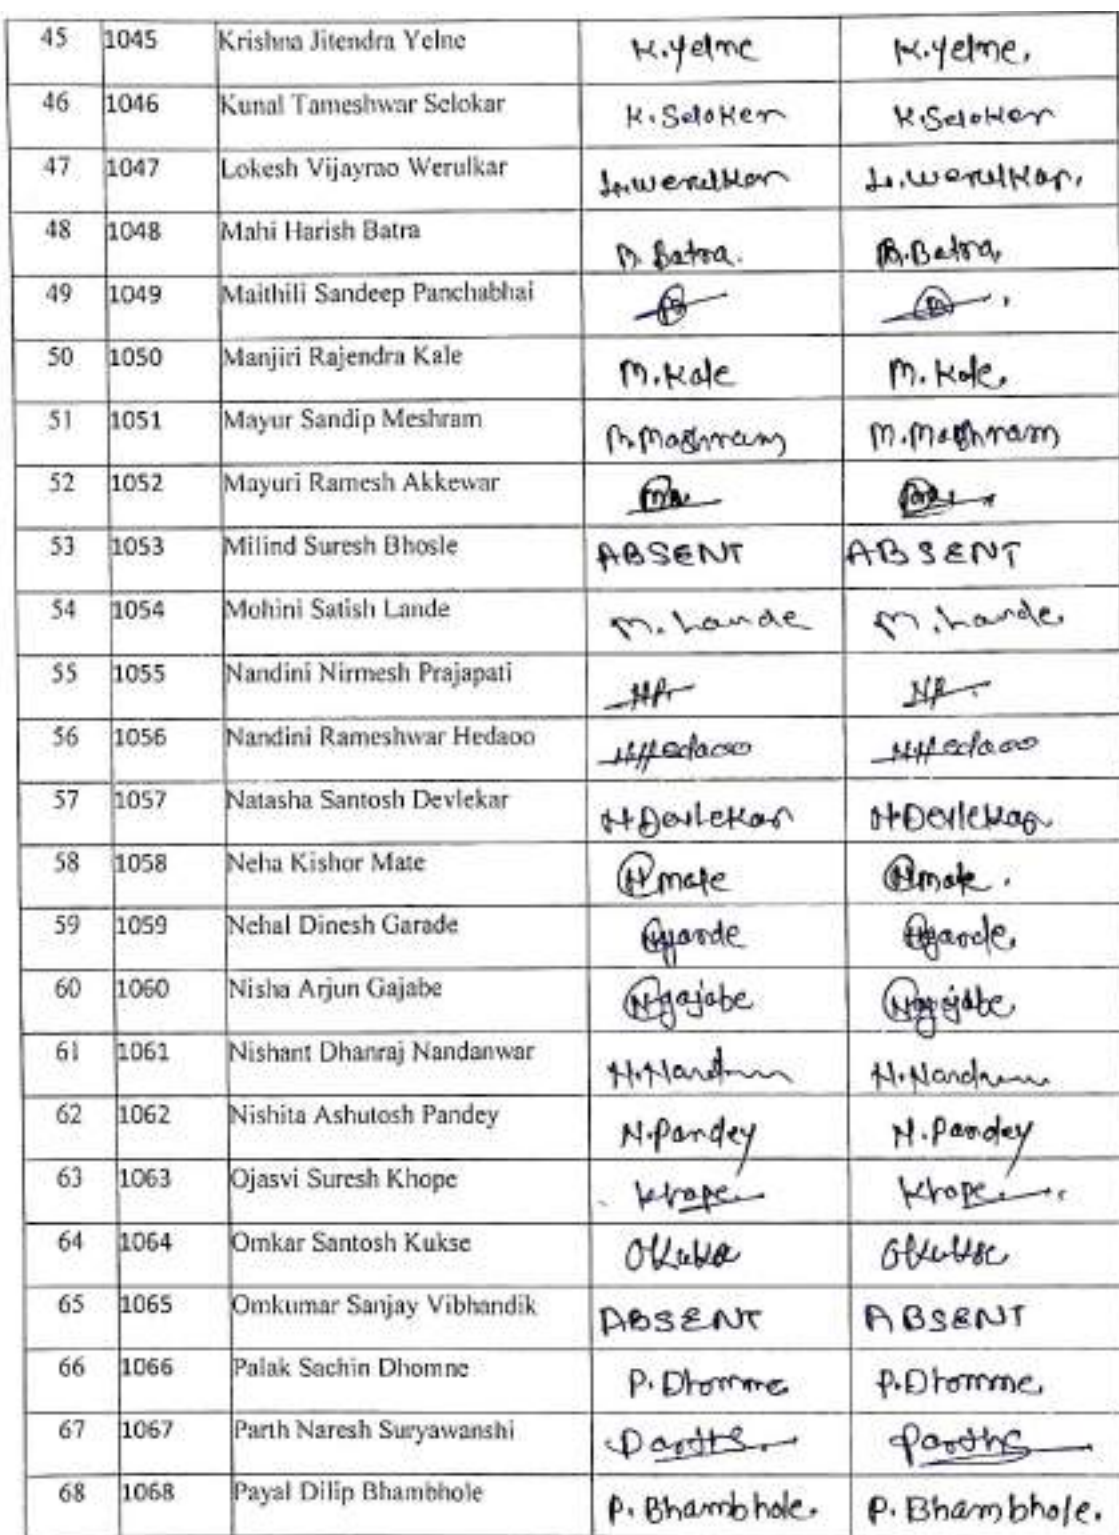 45 1045 Krishna Jitendra Yelne K.Yelne K.Yelne.
46 1046 Kunal Tameshwar Selokar K.Seloker K.Seloker
47 1047 Lokesh Vijayrao Werulkar L.Werulkar L.Werulkar.
48 1048 Mahi Harish Batra M.Batra. M.Batra.
49 1049 Maithili Sandeep Panchabhai
50 1050 Manjiri Rajendra Kale M.Kale M.Kale.
51 1051 Mayur Sandip Meshram M.Meshram M.Meshram
52 1052 Mayuri Ramesh Akkewar
53 1053 Milind Suresh Bhosle ABSENT ABSENT
54 1054 Mohini Satish Lande M.Lande M.Lande.
55 1055 Nandini Nirmesh Prajapati NP. NP.
56 1056 Nandini Rameshwar Hedaoo NHedaoo NHedaoo
57 1057 Natasha Santosh Devlekar NDevlekar NDevlekar
58 1058 Neha Kishor Mate Nmate Nmate.
59 1059 Nehal Dinesh Garade Ngarde Ngarde.
60 1060 Nisha Arjun Gajabe Ngajabe Ngajabe
61 1061 Nishant Dhanraj Nandanwar
62 1062 Nishita Ashutosh Pandey N.Pandey N.Pandey
63 1063 Ojasvi Suresh Khope Khope Khope
64 1064 Omkar Santosh Kukse OKukse OKukse
65 1065 Omkumar Sanjay Vibhandik ABSENT ABSENT
66 1066 Palak Sachin Dhomne P.Dhomne P.Dhomne.
67 1067 Parth Naresh Suryawanshi ParthS. ParthS
68 1068 Payal Dilip Bhambhole P.Bhambhole. P.Bhambhole.